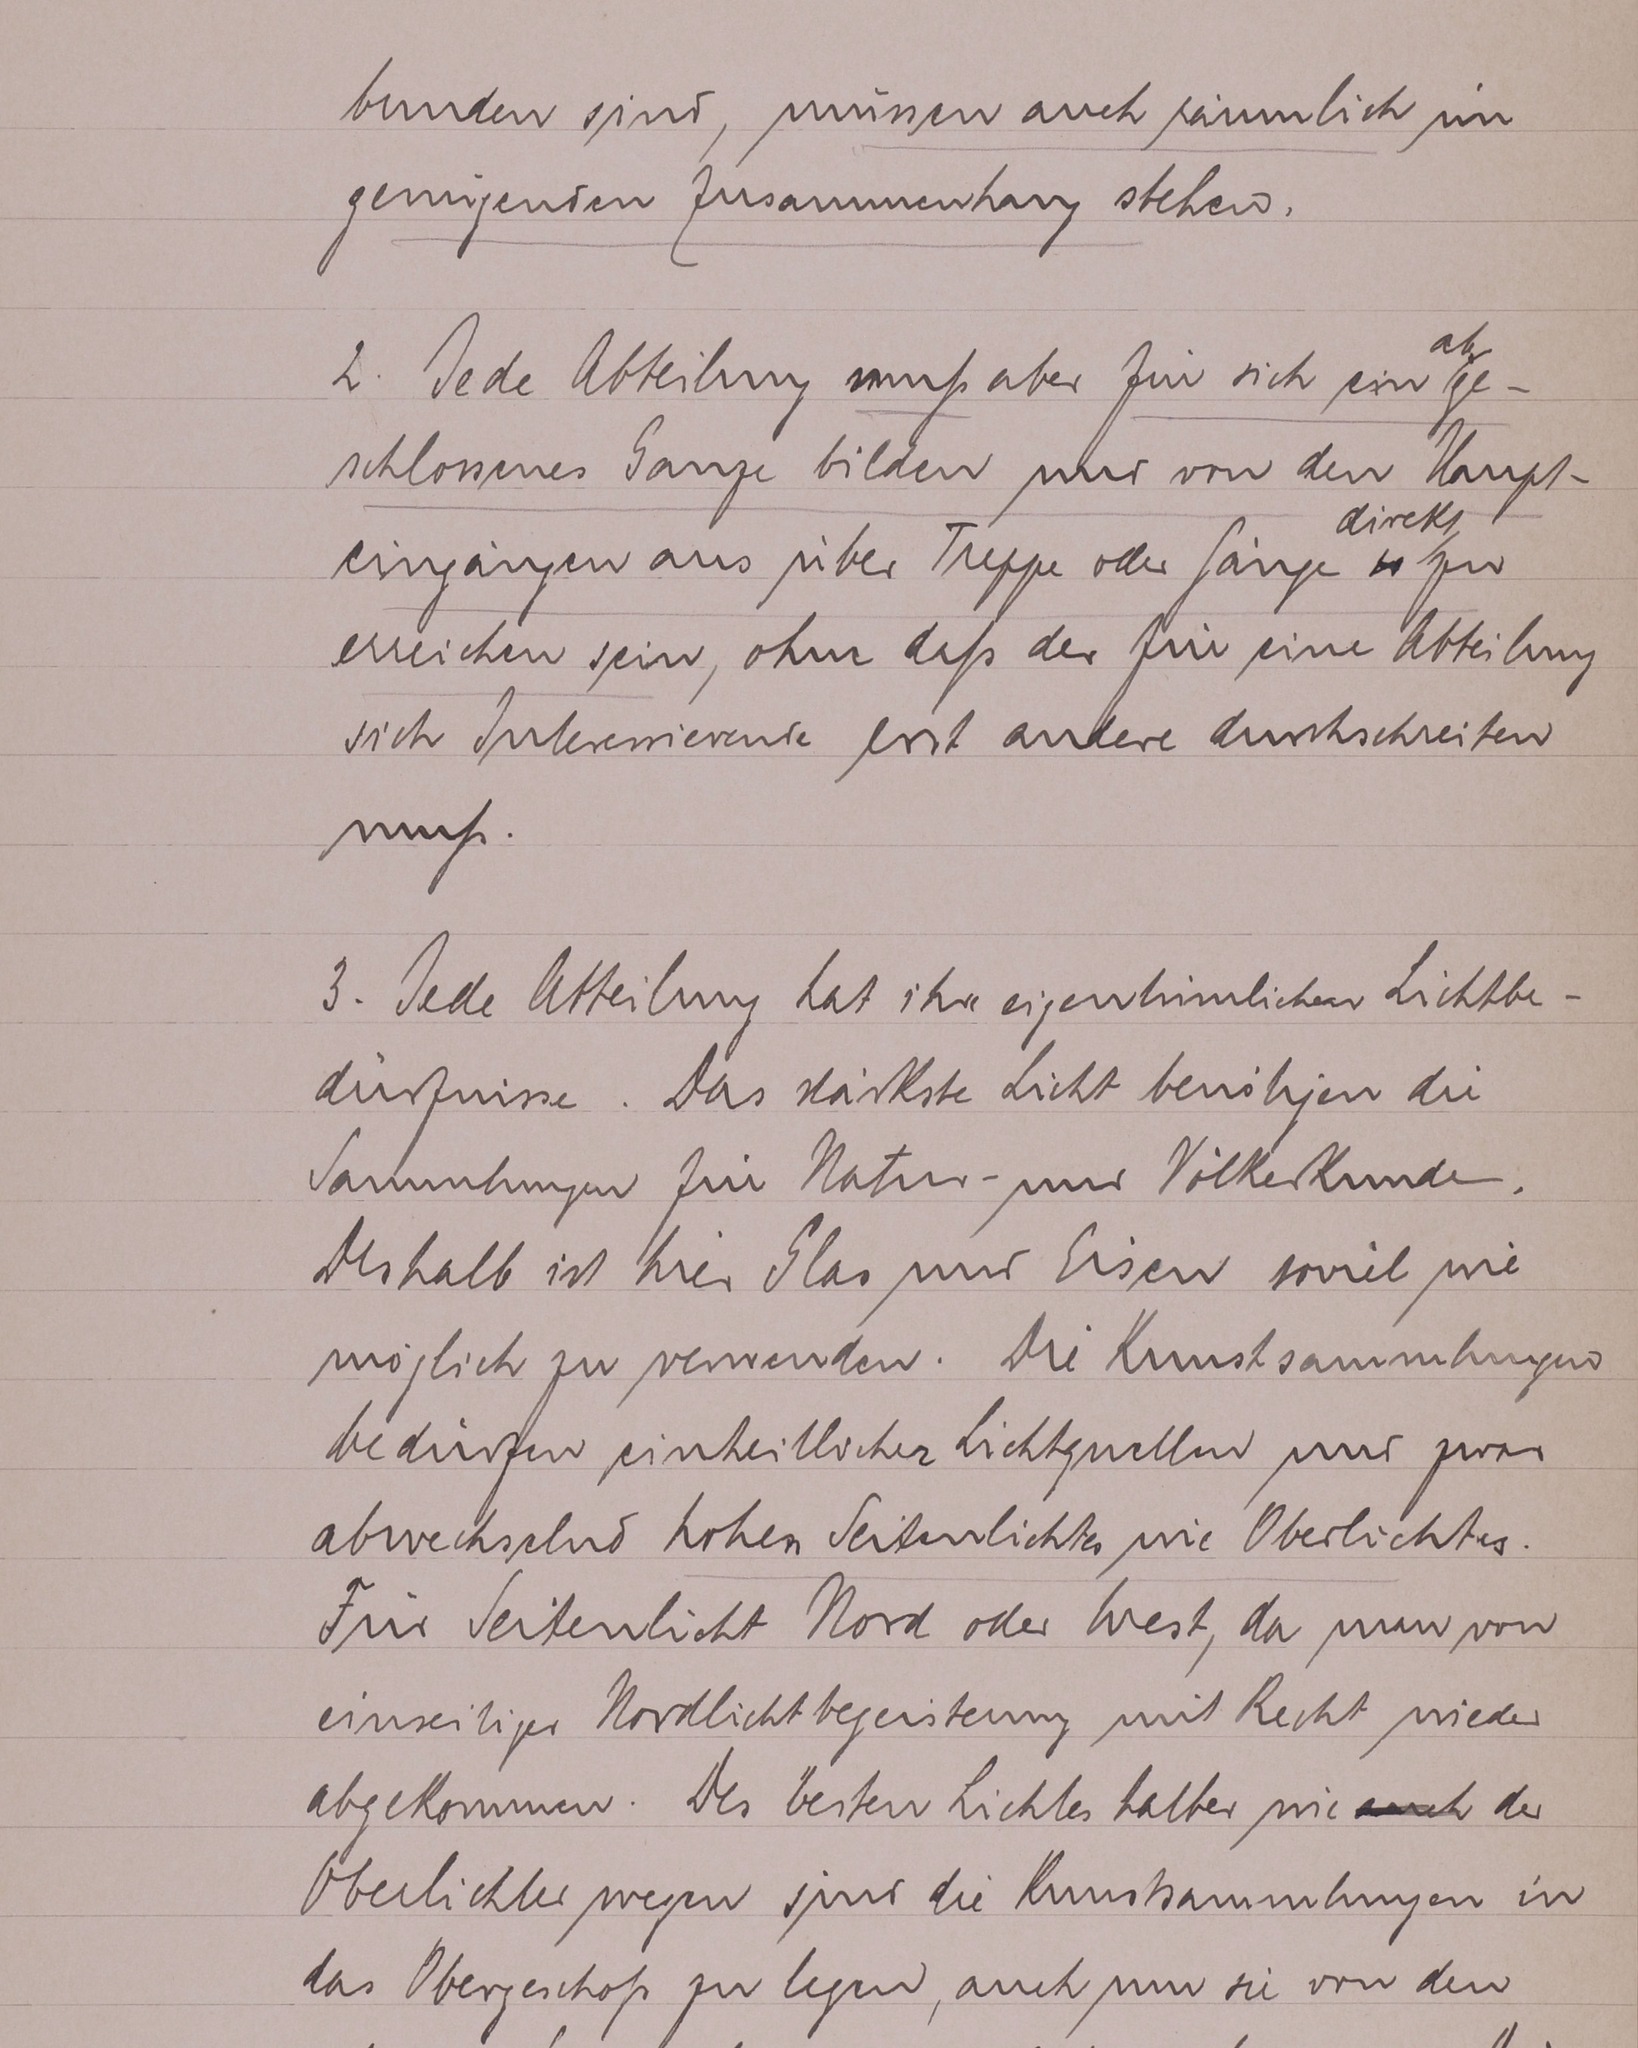 bunden sind, müssen auch räumlich in
genügenden Zusammenhang stehen.
2. Jede Abteilung muß aber für sich ein abge-
schlossenes Ganze bilden und von den Haupt-
eingängen aus über Treppe oder Gänge direkt zu
erreichen sein, ohne daß der für eine Abteilung
sich Interessierende erst andere durchschreiten
muß.
3. Jede Abteilung hat ihre eigentümlichen Lichtbe-
dürfnisse. Das stärkste Licht benötigen die
Sammlungen für Natur- und Völkerkunde.
Deshalb ist hier Glas und Eisen soviel wie
möglich zu verwenden. Die Kunstsammlungen
bedürfen einheitlicher Lichtquellen und zwar
abwechselnd hohen Seitenlichtes wie Oberlichtes.
Für Seitenlicht Nord oder West, da man von
einseitiger Nordlichtbegeisterung mit Recht wieder
abgekommen. Des besten Lichtes halber wie auch der
Oberlichter wegen sind die Kunstsammlungen in
das Obergeschoß zu legen, auch um sie von den